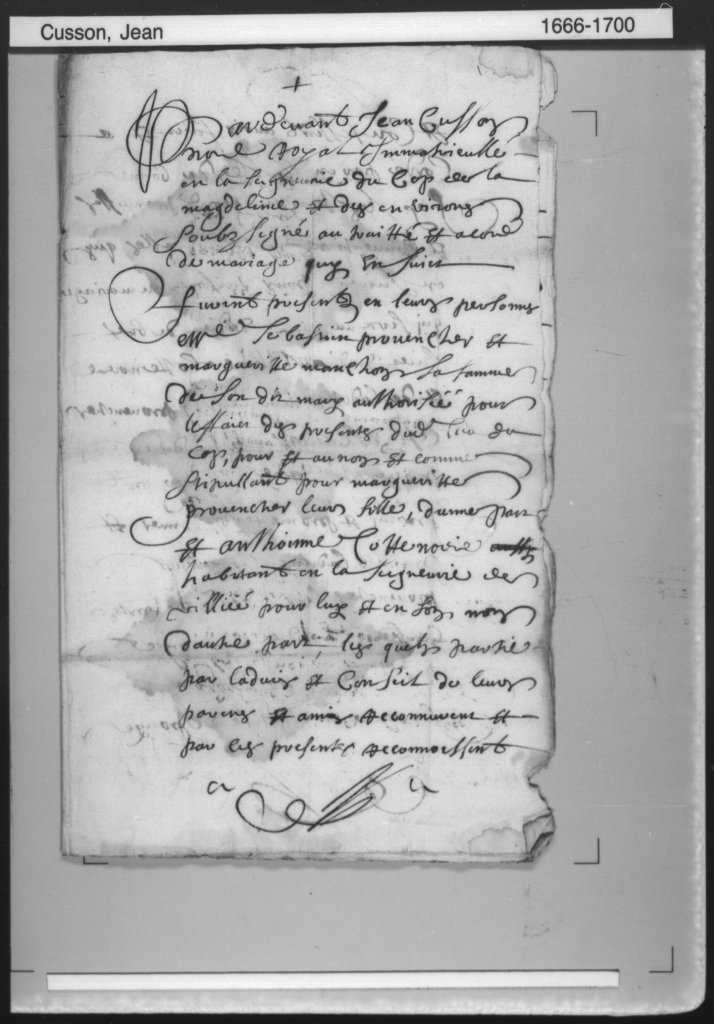 Cusson, Jean 1666-1700
+
Pardevant Jean Cusson
no.re Royal Immatricullé
en la seigneurie du Cap de la
magdeleine et des environs
soubz signé au traitté et acord
de mariage quy Ensuict
furent presents en leurs personnes
Sebastien provencher et
margueritte manchon sa famme
de son dit mary authorisée pour
leffaict des presentes
Cap, pour et au nom et comme
stipullant pour margueritte
provencher leur fille, dunne part
et anthoinne Cottenoire
habitant en la seigneurie de
villiée pour luy et en son nom
dautre part, les quels partie
par ladvis et Conseil de leurs
parens et amis Reconnurent et
par ces presentes Reconnoissent